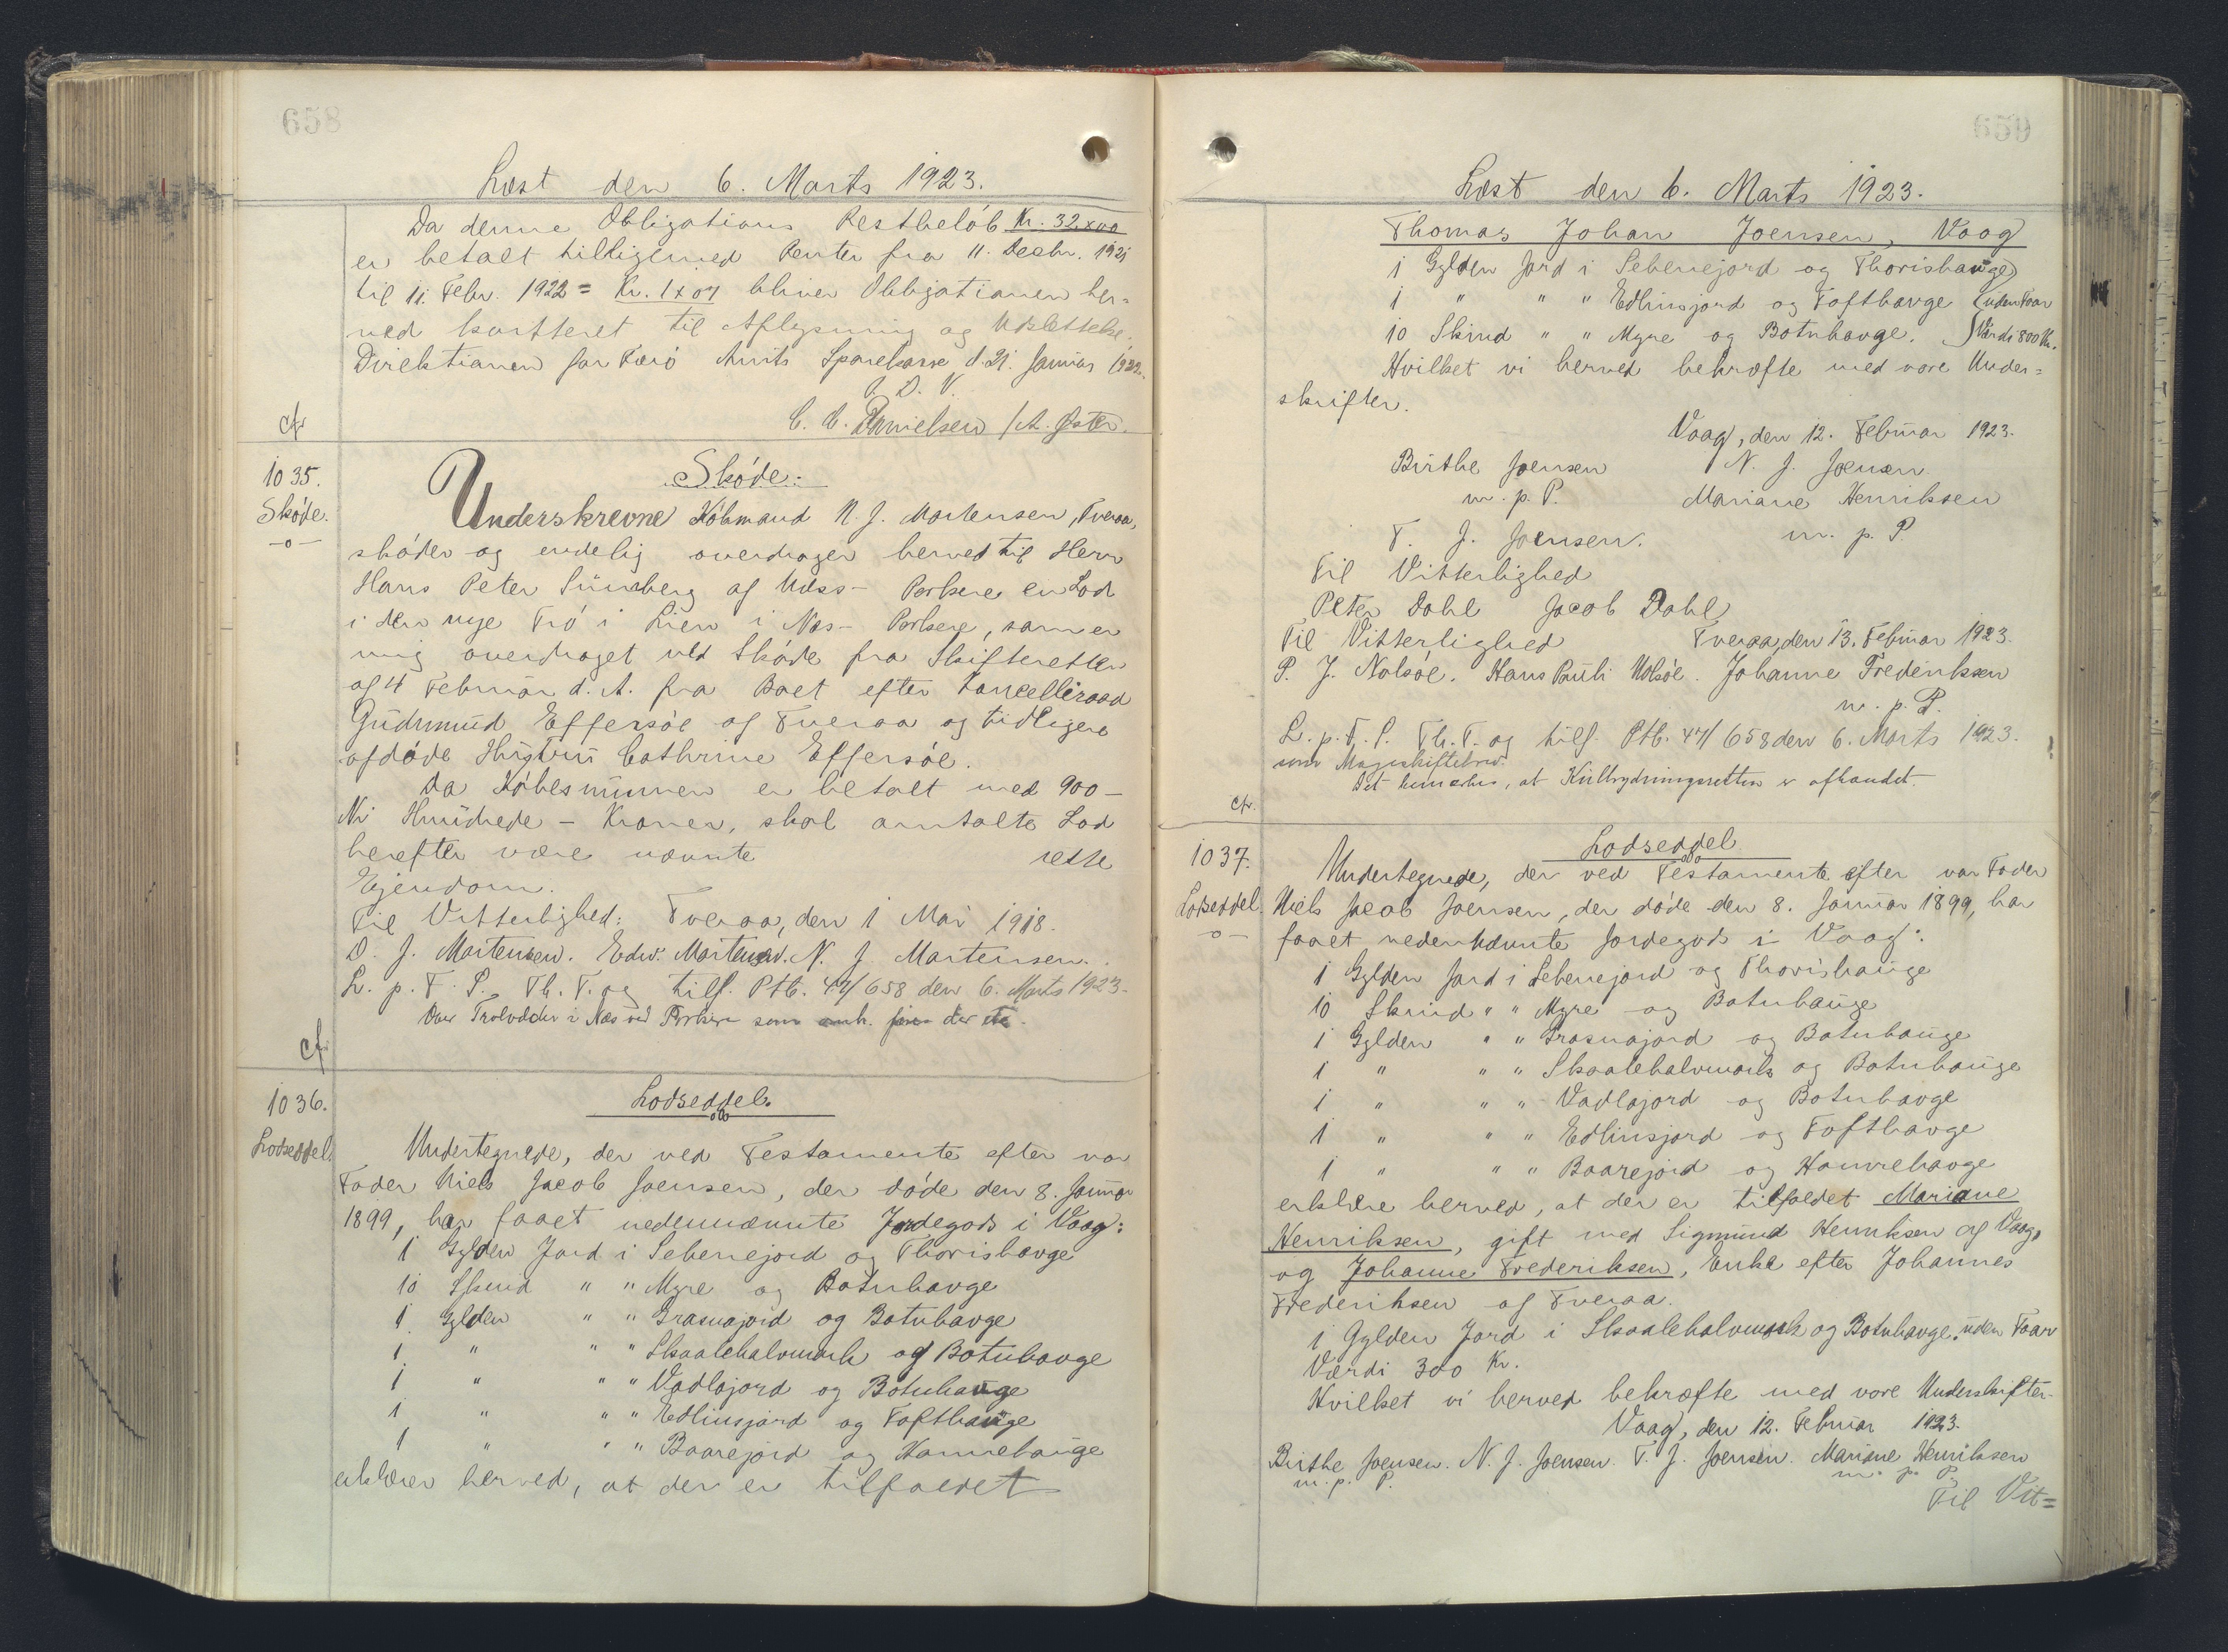 658
Læst den 6. Marts 1923.
Da denne Obligations Restbeløb Kr. 32x00
er betalt tilligemed Renter fra 11. Decbr. 1921
til 11. Febr. 1922 = Kr. 1x07 bliver Obligationen her=
ved kvitteret til Aflysning og Udslettelse.
Direktionen for Færø Amts Sparekasse d. 21. Januar 1922.
P. D. V.
C. C. Danielsen / A. Øster.
cfr
1035.
Skøde.
Skøde:
Underskrevne Købmand N. J. Mortensen, Tveraa,
skøder og endelig overdrager herved til Herr
Hans Peter Lüneberg af Næss- Porkere en Lod
i den nye Trø i Lien i Næs- Porkere, som er
mig overdraget ved Skøde fra Skifteretten
af 4 Februar d. A. fra Boet efter Kancelliraad
Gudmund Effersøe af Tveraa og tidligere
afdøde Hustru Cathrine Effersøe.
Da Købesummen er betalt med 900 -
Ni Hundrede - Kroner, skal omtalte Lod
herefter være nævnte rette
Ejendom.
Til Vitterlighed: Tveraa, den 1 Mai 1918.
D. J. Mortensen. Edw. Mortensen. N. J. Mortensen.
L. p. F. S. Th. T. og tilf. Ptb. 44/658 den 6. Marts 1923.
Over Trølodder i Næs ved Porkere som anh. der
cf.
1036.
Lodseddel.
Lodseddel.
Undertegnede, der ved Testamente efter vor
Fader Niels Jacob Joensen, der døde den 8. Januar
1899, har faaet nedennævnte Jordegods i Vaag:
1 Gylden Jord i Seberrejord og Thorishavge
10 Skind " " Myre og Botnhavge
1 Gylden " " Grasnajord og Botnhavge
1 " " " Skaalehalvmark og Botnhavge
1 " " " Vadlajord og Botnhauge
1 " " " Edlinsjord og Tofthauge
1 " " " Baarejord og Hamrehauge
erklærer herved, at der er tilfaldet
659
Læst den 6. Marts 1923.
Thomas Johan Joensen, Vaag
1 Gylden Jord i Seberrejord og Thorishauge
1 " " " Edlinsjord og Tofthavge uden Faar
10 Skind " " Myre og Botnhavge. Værdi 800 Kr.
Hvilket vi herved bekræfte med vore Under=
skrifter.
Vaag, den 12. Februar 1923.
Birthe Joensen N. J. Joensen.
m. p. P. Mariane Henriksen
T. J. Joensen. m. p. P.
Til Vitterlighed
Peter Dahl Jacob Dahl
Til Vitterlighed Tveraa, den 13. Februar 1923.
P. J. Nolsøe. Hans Pauli Nolsøe. Johanne Frederiksen
m. p. P.
L. p. F. S. Th. T. og tilf. Ptb. 44/658 den 6. Marts 1923.
som Mageskiftebrev.
Det bemærkes, at Kulbrydningsretten er afhændet.
cfr.
1037.
Lodseddel.
Lodseddel
Undertegnede, der ved Testamente efter vor Fader
Niels Jacob Joensen, der døde den 8. Januar 1899, har
faaet nedennævnte Jordegods i Vaag:
1 Gylden Jord i Seberrejord og Thorishauge
10 Skind " " Myre og Botnhauge
1 Gylden " " Grasnajord og Botnhauge
1 " " " Skaalehalvmark og Botnhauge
1 " " " Vadlajord og Botnhavge
1 " " " Edlinsjord og Tofthavge
1 " " " Baarejord og Hamrehavge
erklære herved, at der er tilfaldet Mariane
Henriksen, gift med Sigmund Henriksen af Vaag,
og Johanne Frederiksen, Enke efter Johannes
Frederiksen af Tveraa.
1 Gylden Jord i Skaalehalvmark og Botnhavge, uden Faar
Værdi 300 Kr.
Hvilket vi herved bekræfte med vore Underskrifter.
Vaag, den 12. Februar 1923.
Birthe Joensen. N. J. Joensen. T. J. Joensen. Mariane Henriksen
m. p. P. m. p. P.
Til Vit=